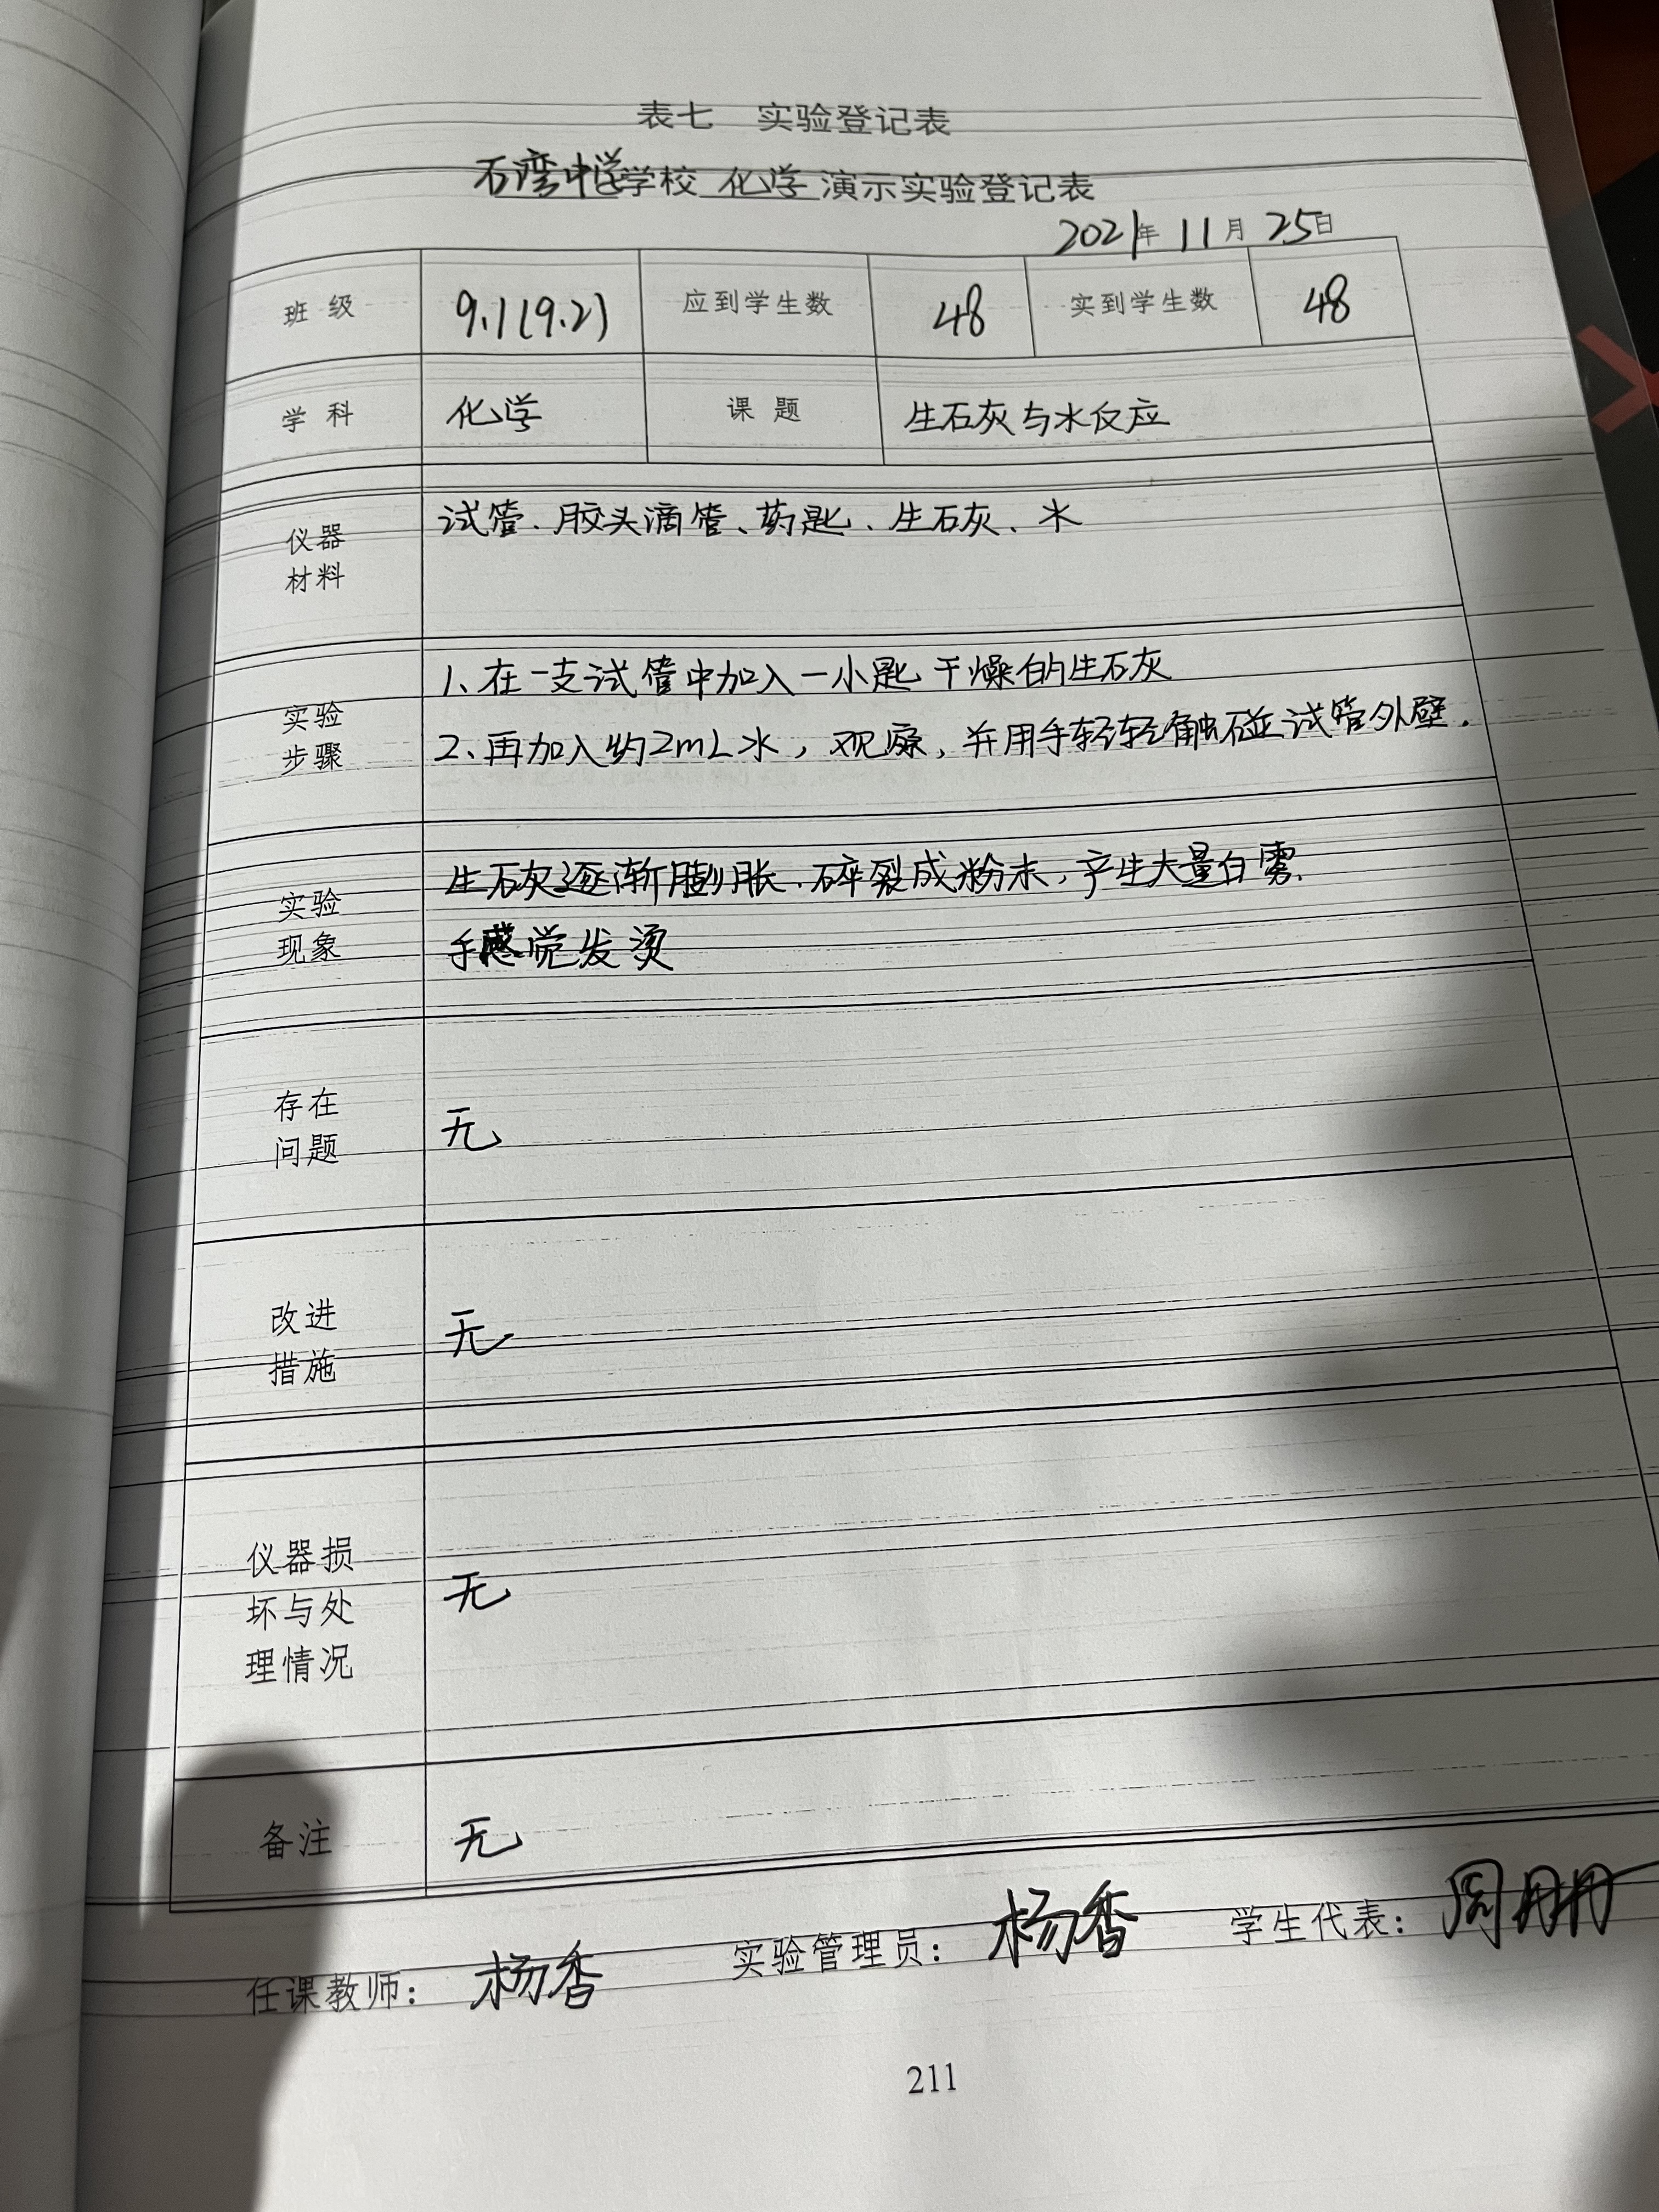 表七 实验登记表
石湾中学学校 化学 演示实验登记表
2021年 11月 25日
班级 9.1(9.2) 应到学生数 48 实到学生数 48
学科 化学 课题 生石灰与水反应
仪器材料 试管、胶头滴管、药匙、生石灰、水
实验步骤 1、在一支试管中加入一小匙干燥的生石灰
2、再加入约2mL水，观察，并用手轻轻触碰试管外壁.
实验现象 生石灰逐渐膨胀、碎裂成粉末，产生大量白雾.
手感觉发烫
存在问题 无
改进措施 无
仪器损坏与处理情况 无
备注 无
任课教师： 杨香 实验管理员： 杨香 学生代表： 周
211